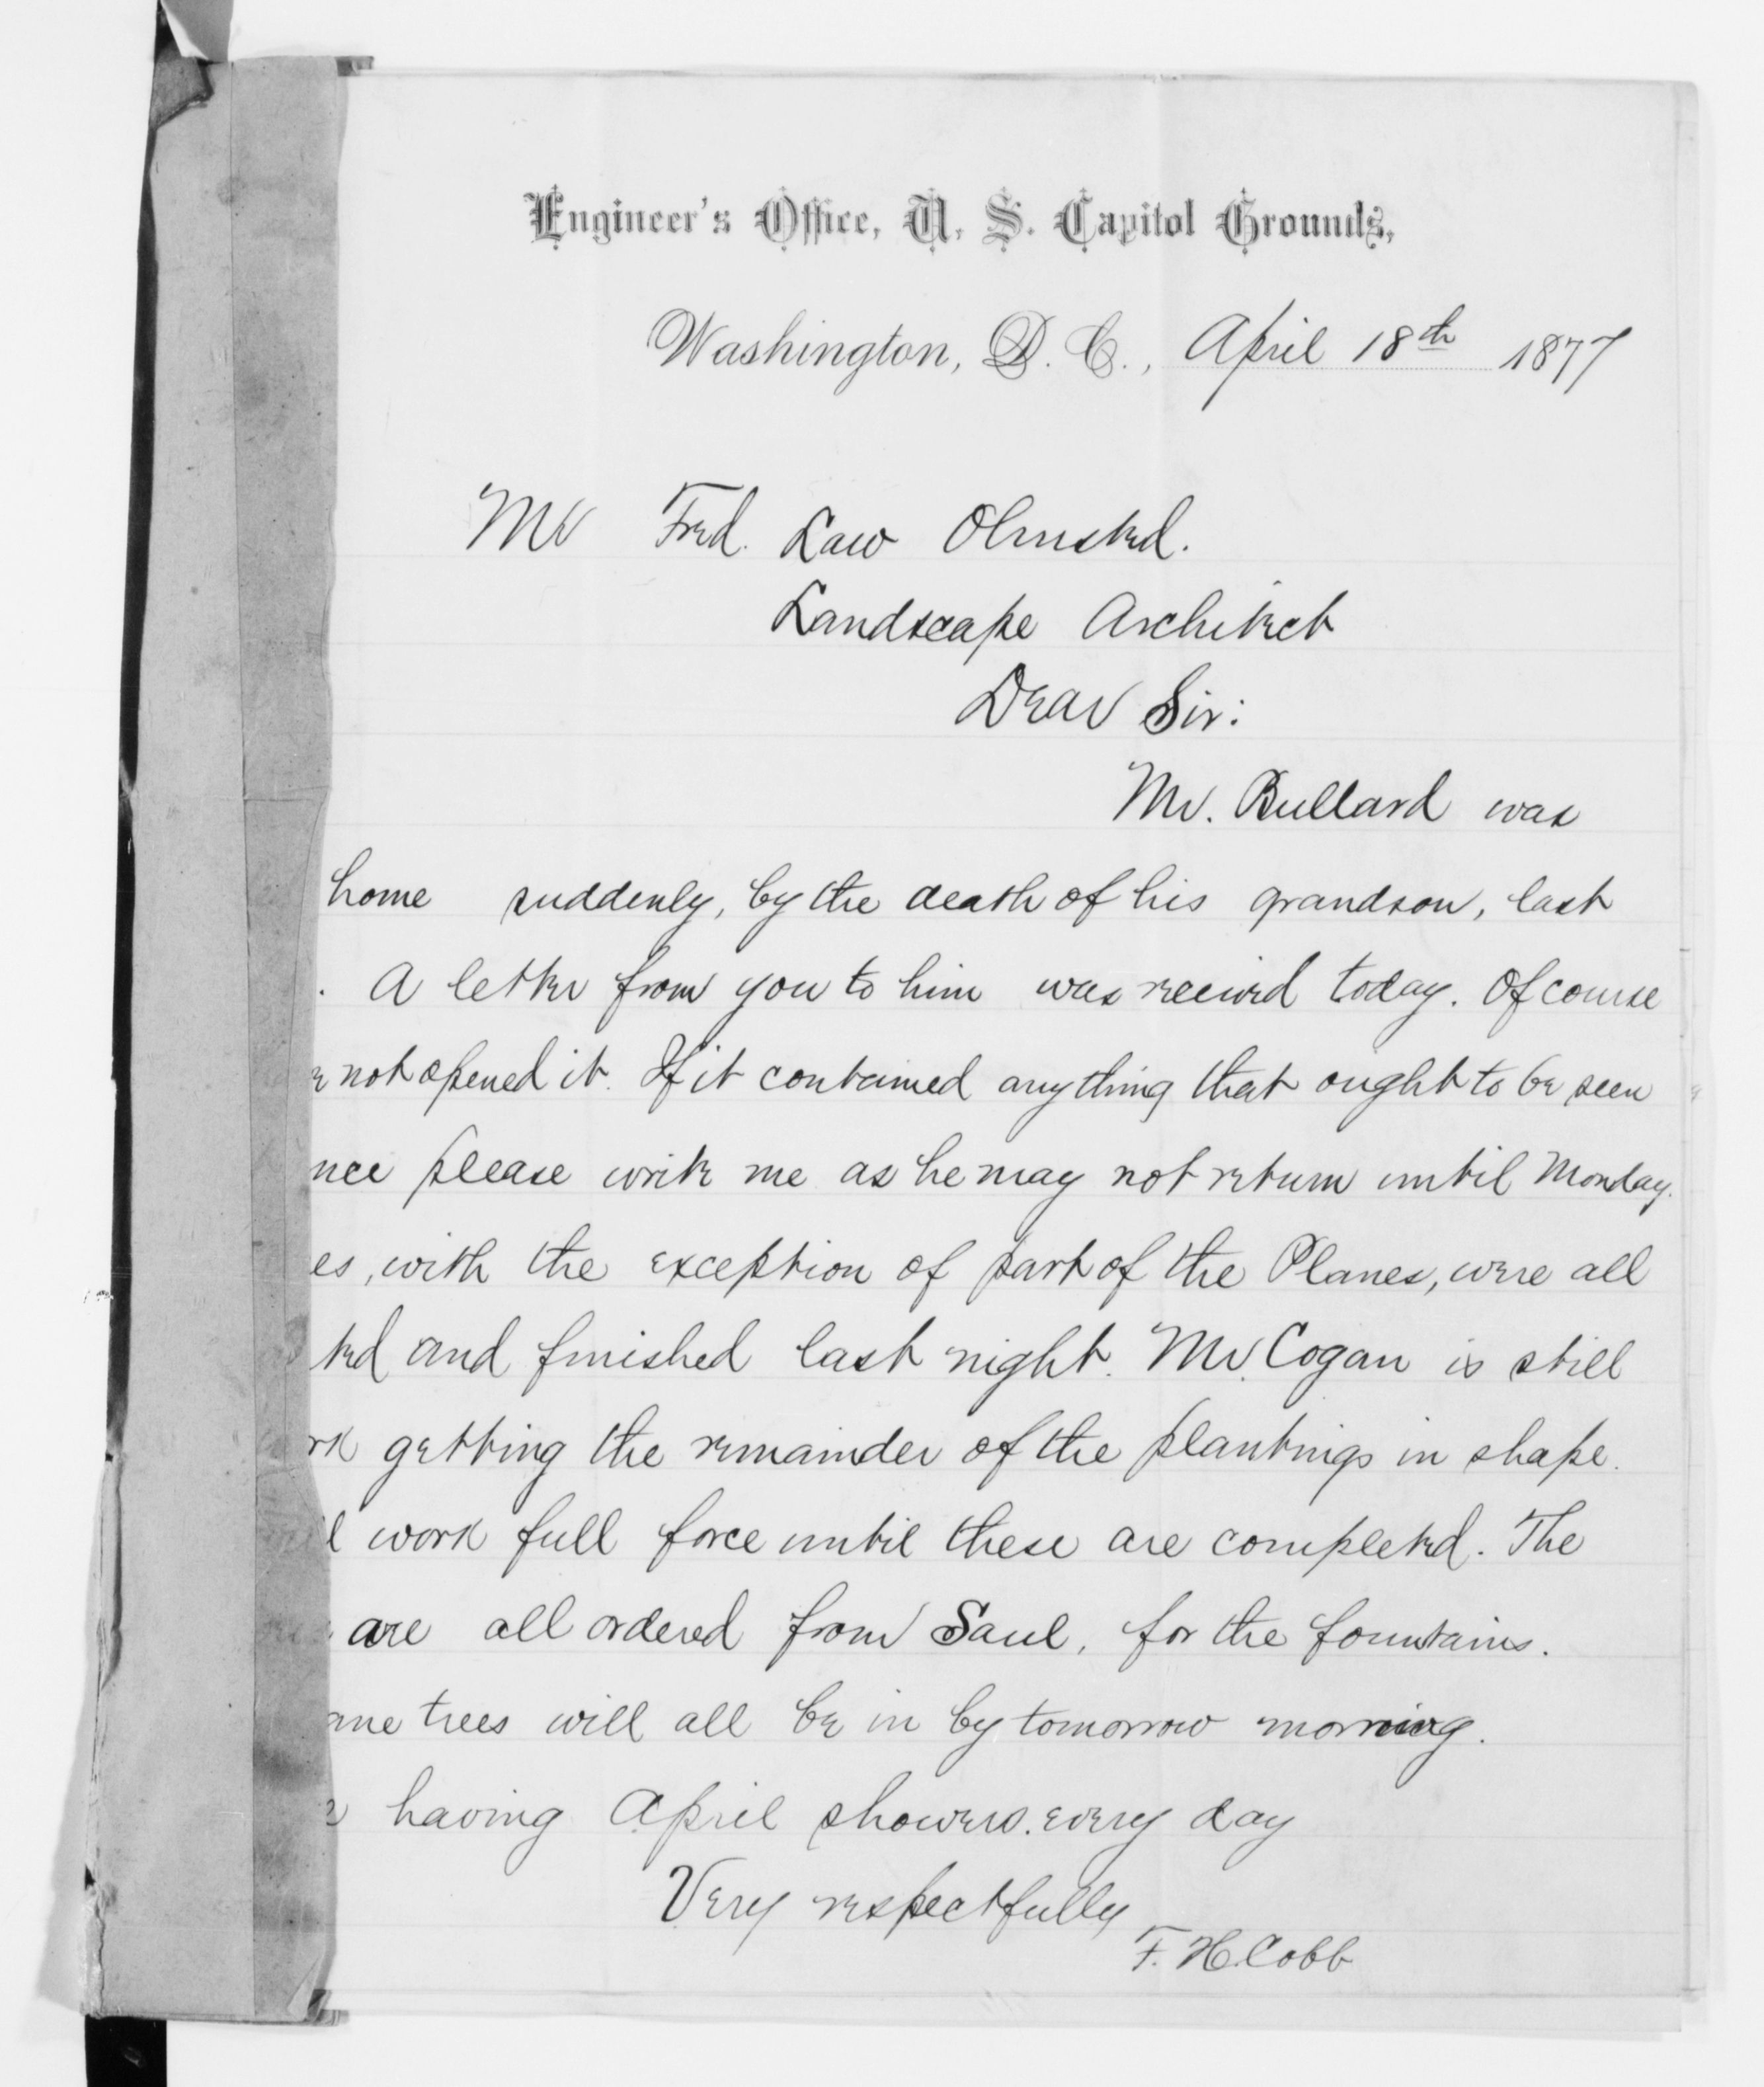 Engineer's Office, U. S. Capitol Grounds,
Washington, D. C., April 18th 1877
Mr Fred. Law Olmsted.
Landscape Architect
Dear Sir:
Mr. Bullard was
home suddenly, by the death of his grandson, last
. A letter from you to him was received today. Of course
e not opened it. If it contained anything that ought to be seen
nce please write me as he may not return until Monday.
es, with the exception of part of the Planes, were all
ted and finished last night. Mr. Cogan is still
rk getting the remainder of the plantings in shape.
l work full force until these are completed. The
are all ordered from Saul, for the fountains.
ane trees will all be in by tomorrow morning.
e having April showers. every day
Very respectfully
F. H. Cobb